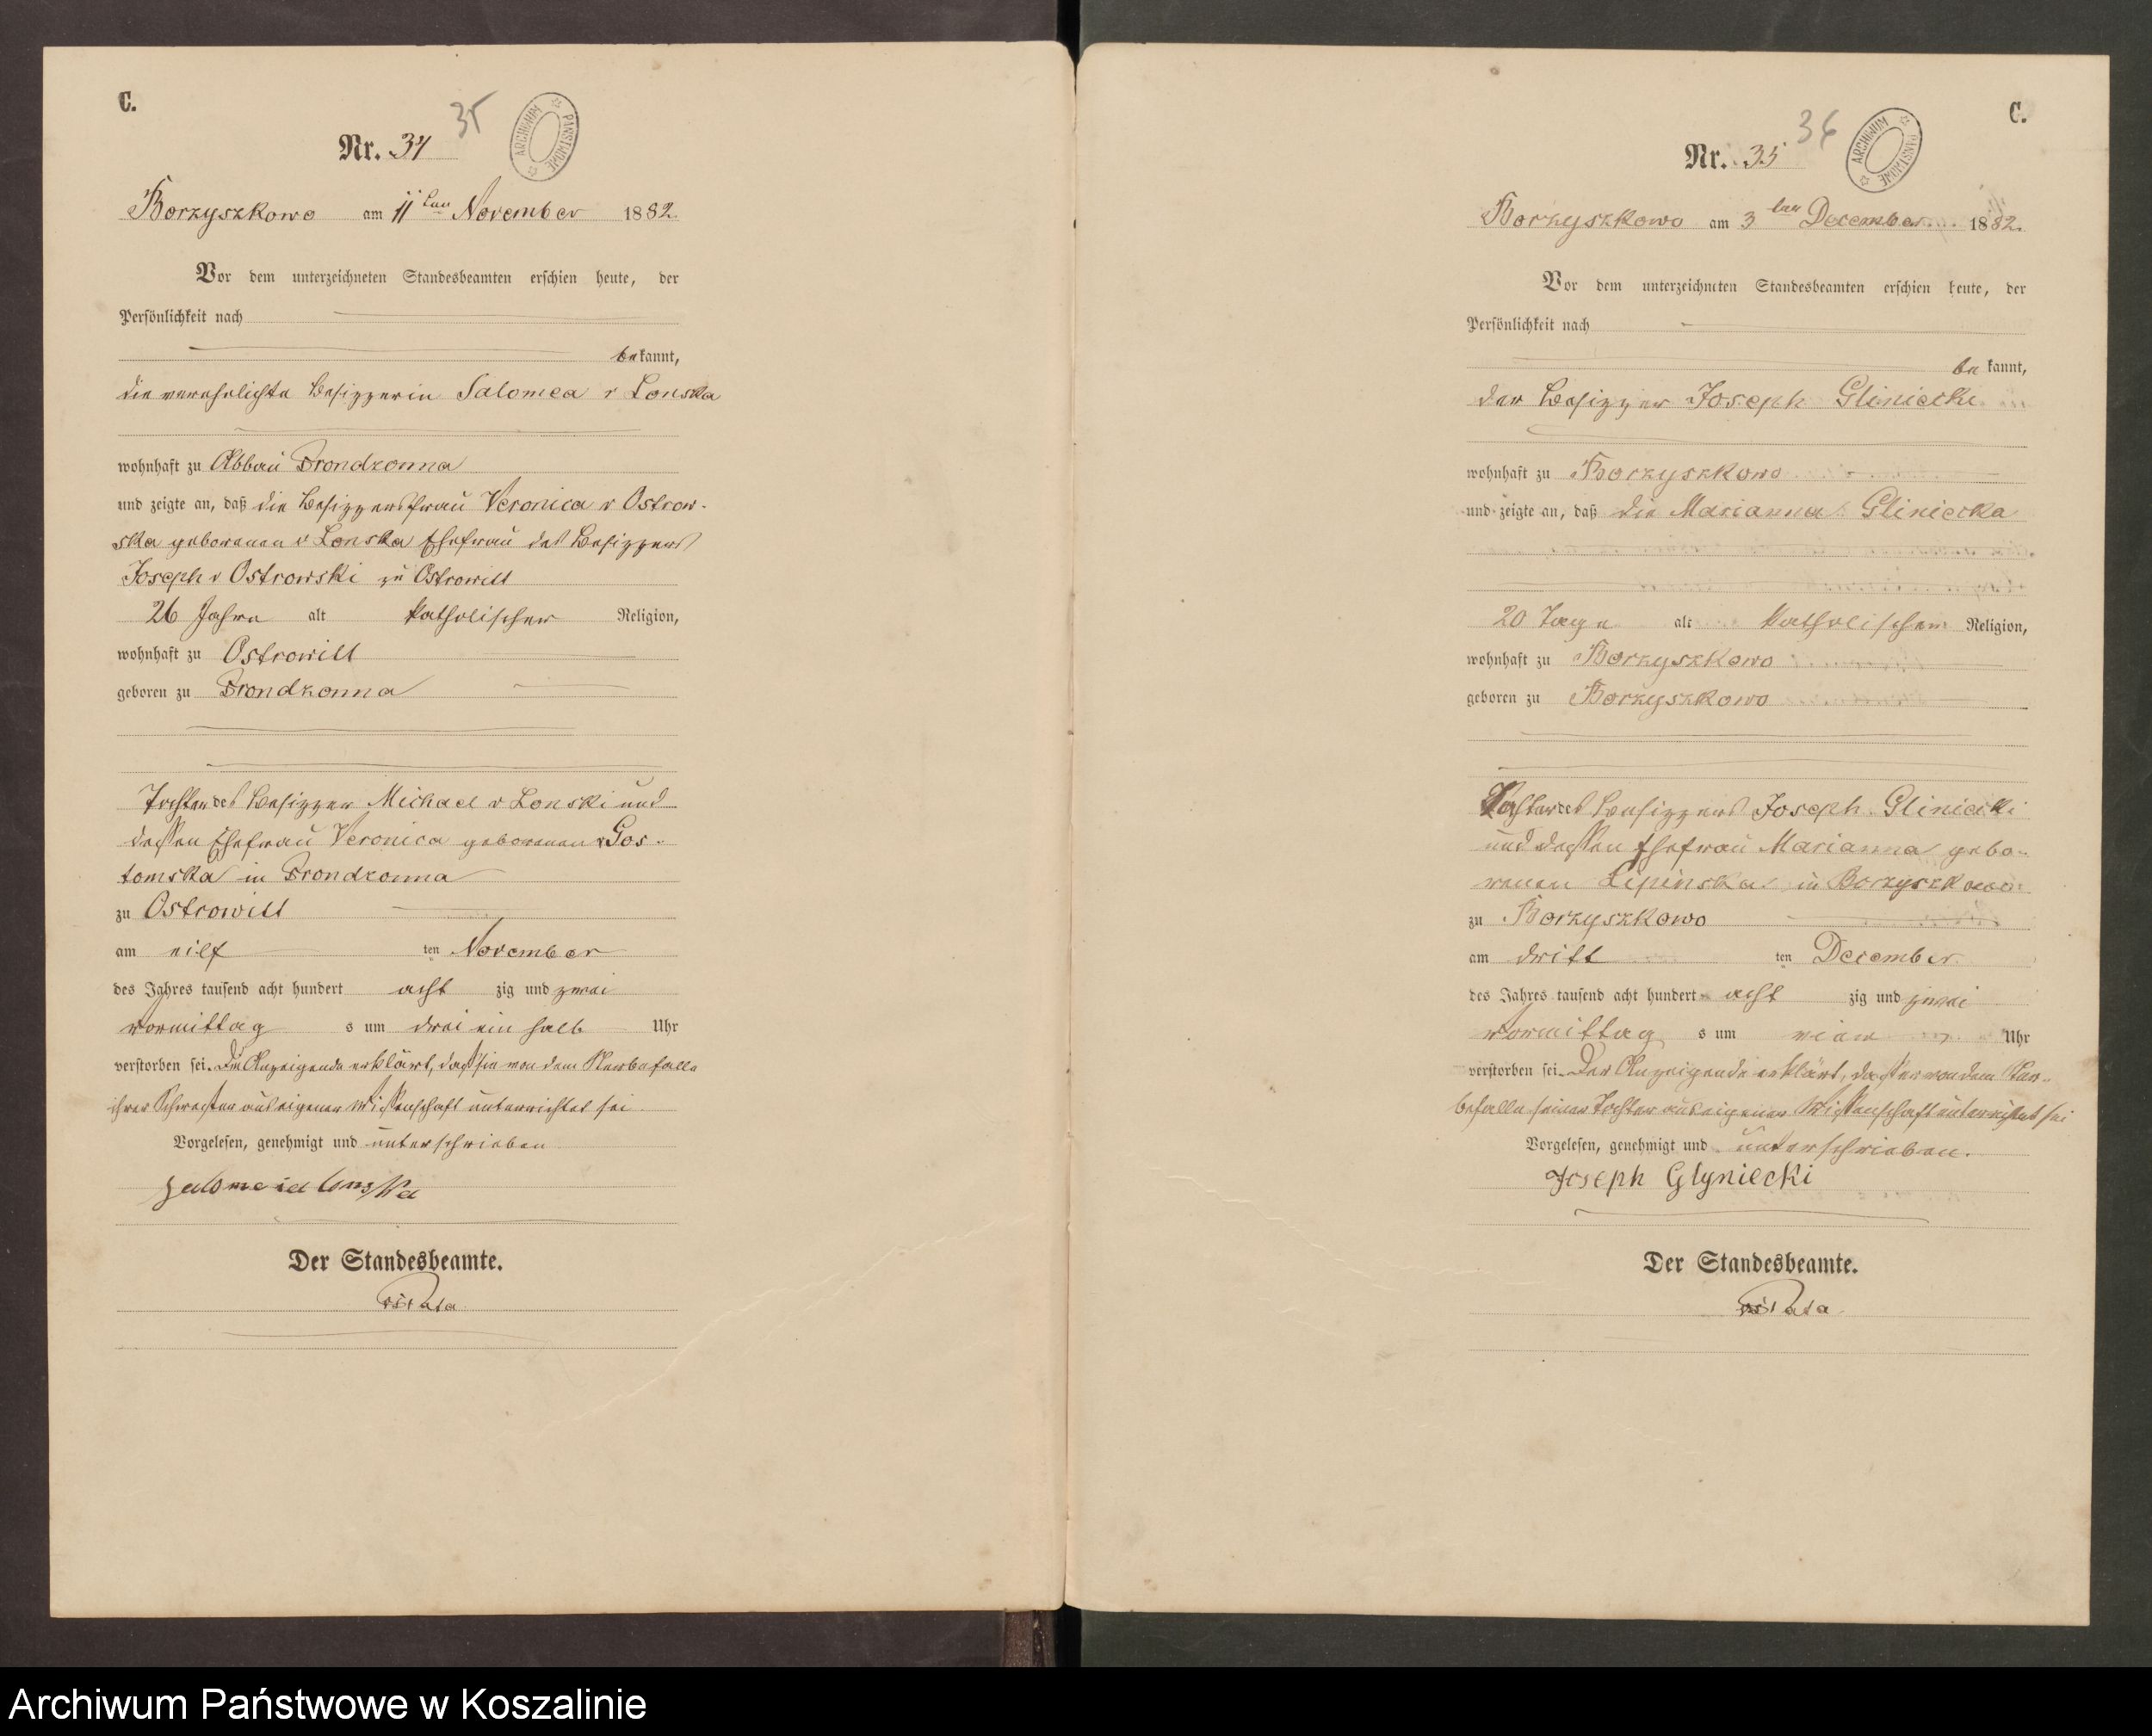 C.
35
ARCHIWUM PAŃSTWOWE
Nr. 34
Borzyszkowo am 11ten November 1882.
Vor dem unterzeichneten Standesbeamten erschien heute, der
Persönlichkeit nach
bekannt,
die verehelichte Besizzerin Salomea v Lonska
wohnhaft zu Abbau Brondzonna
und zeigte an, daß die Besizzersfrau Veronica v Ostrow-
ska geborenen v Lonska Ehefrau des Besizzers
Joseph v Ostrowski zu Ostrowitt
26 Jahre alt katholischer Religion,
wohnhaft zu Ostrowitt
geboren zu Brondzonna
Tochter des Besizzer Michael v Lonski und
dessen Ehefrau Veronica geborenen v Gos-
tomska in Brondzonna
zu Ostrowitt
am eilf ten November
des Jahres tausend acht hundert acht zig und zwei
vormittag s um drei ein halb Uhr
verstorben sei. Die Anzeigende erklärt, daß sie von dem Sterbefalle
ihrer Schwester aus eigener Wissenschaft unterrichtet sei.
Vorgelesen, genehmigt und unterschrieben
Salomeia Lonska
Der Standesbeamte.
C.
36
ARCHIWUM PAŃSTWOWE
Nr. 35
Borzyszkowo am 3ten December 1882.
Vor dem unterzeichneten Standesbeamten erschien heute, der
Persönlichkeit nach
bekannt,
der Besizzer Joseph Gliniecki
wohnhaft zu Borzyszkowo
und zeigte an, daß die Marianna Gliniecka
20 Tage alt katholischer Religion,
wohnhaft zu Borzyszkowo
geboren zu Borzyszkowo
Tochter des Besizzers Joseph Gliniecki
und dessen Ehefrau Marianna gebo-
renen Lipinska in Borzyszkowo
zu Borzyszkowo
am dritt ten December
des Jahres tausend acht hundert acht zig und zwei
vormittag s um vier Uhr
verstorben sei. Der Anzeigende erklärt, daß er von dem Ster-
befalle seiner Tochter aus eigener Wissenschaft unterrichtet sei
Vorgelesen, genehmigt und unterschrieben.
Joseph Glyniecki
Der Standesbeamte.
Archiwum Państwowe w Koszalinie